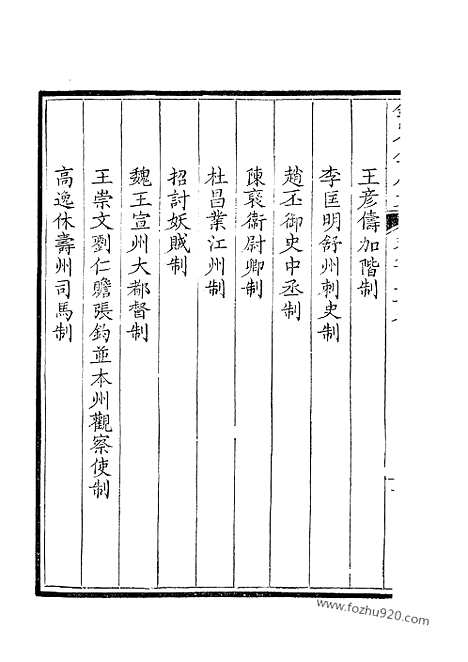 王彥儔加階制
李匡明舒州刺史制
趙丕御史中丞制
陳褒衞尉卿制
杜昌業江州制
招討妖賊制
魏王宣州大都督制
王崇文劉仁贍張鈞並本州觀察使制
高逸休壽州司馬制
www.fozhu920.com